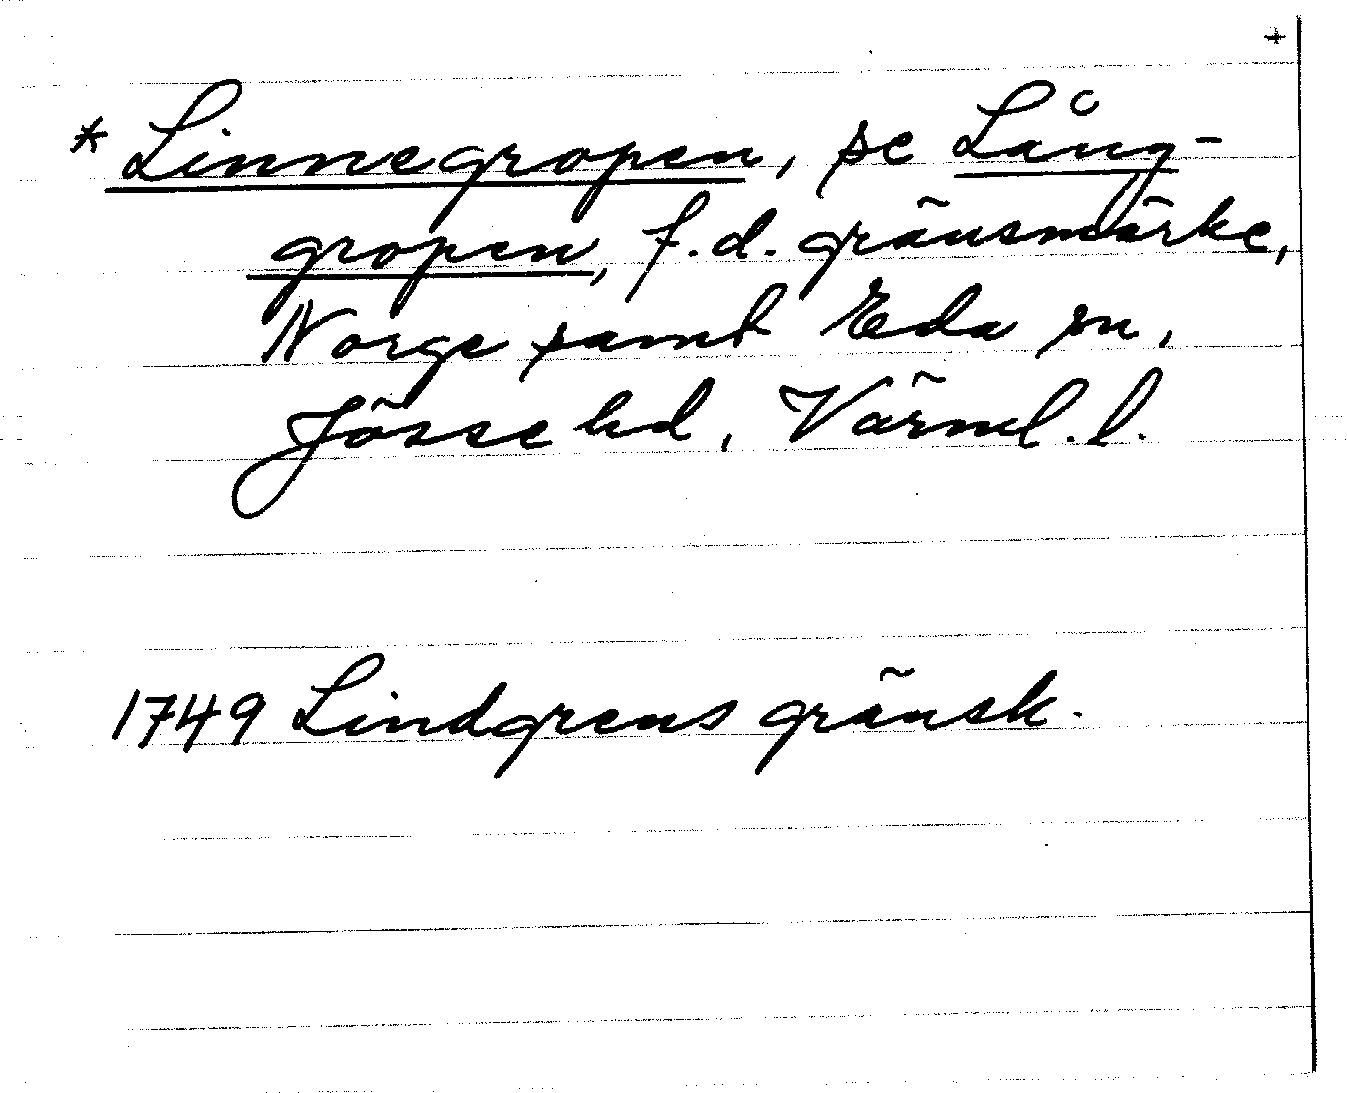 +
* Linnegropen, se Lång-
gropen, f.d. gränsmärke,
Norge samt Eda sn,
Jösse hd, Värml. l.
1749 Lindgrens gränsk.